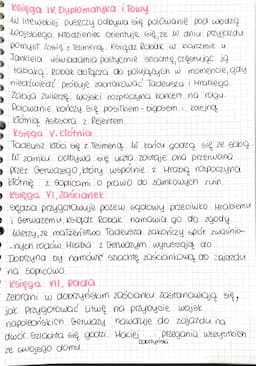 Księga IV, Dyplomatyka i łowy
W litewskiej puszczy odbywa się polowanie pod wodzą
Wojskiego. Młodzieniec orientuje się, że w dniu przyjazdu
pomylił Zosię z Telimeną. Ksiądz Robak w karczmie u
Jankiela uświadamia politycznie szlachtę, częstując ją
tabaką. Robak dołącza do polujących w momencie, gdy
niedźwiedź próbuje zaatakować Tadeusza i Hrabiego.
Zabija zwierzę. Wojski rozpoczyna koncert na rogu.
Polowanie kończy się posiłkiem - bigosem i kolejną
kłótnią Asesora z Rejentem.
Księga V. Kłótnia
Tadeusz kłóci się z Telimeną. W końcu godzą się ze sobą.
W zamku odbywa się uczta. Zostaje ona przerwana
przez Gerwazego, który wspólnie z Hrabią rozpoczyna
kłótnię z Soplicami o prawo do zamkowych ruin.
Księga VI, Zaścianek
Sędzia przygotowuje pozew sądowy przeciwko Hrabiemu
i Gerwazemu. Ksiądz Robak namawia go do zgody.
Wierzy, że małżeństwo Tadeusza zakończy spór zwaśnio-
-nych rodów. Hrabia z Gerwazym wyruszają do
Dobrzyna by namówić szlachtę zaściankową do zajazdu
na Soplicowo.
Księga VII, Rada
Zebrani w dobrzyńskim zaścianku zastanawiają się,
jak przygotować Litwę na przybycie wojsk
napoleońskich. Gerwazy nawołuje do zajazdu na
dwór. Szlachta się godzi. Maciej Dobrzyński przegania wszystkich
ze swojego domu.